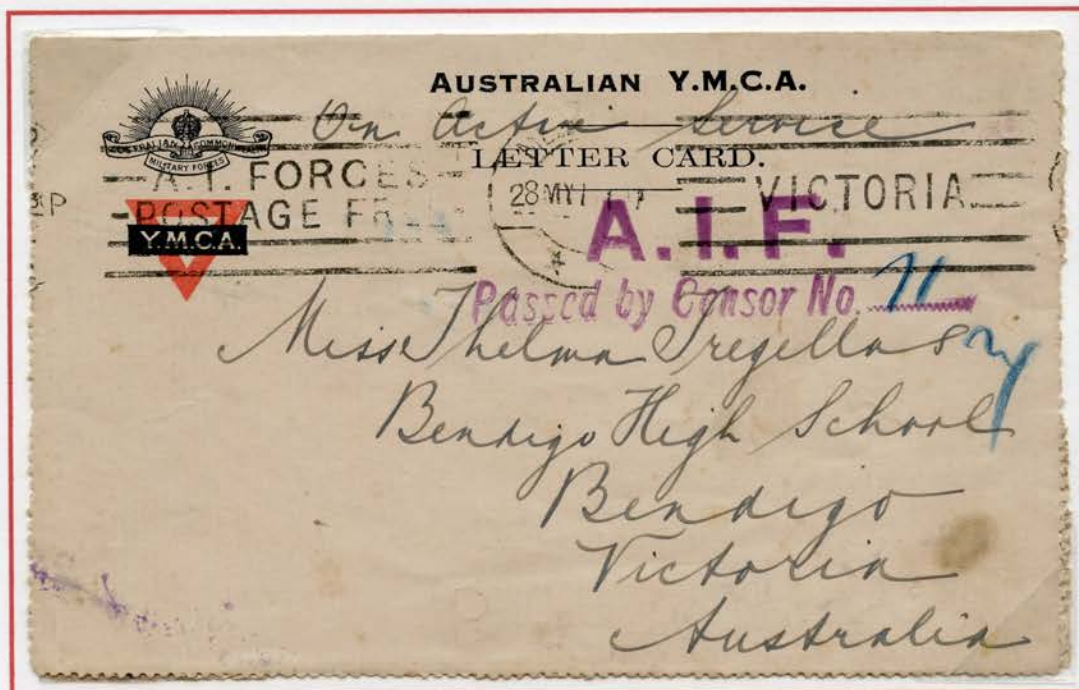 AUSTRALIAN Y.M.C.A.
On Active Service
AUSTRALIAN COMMONWEALTH
MILITARY FORCES
LETTER CARD.
A.I. FORCES
POSTAGE
28 MY
VICTORIA
Y.M.C.A.
A.I.F.
Passed by Censor No. 71
Miss Thelma Tregellas
Bendigo High School
Bendigo
Victoria
Australia